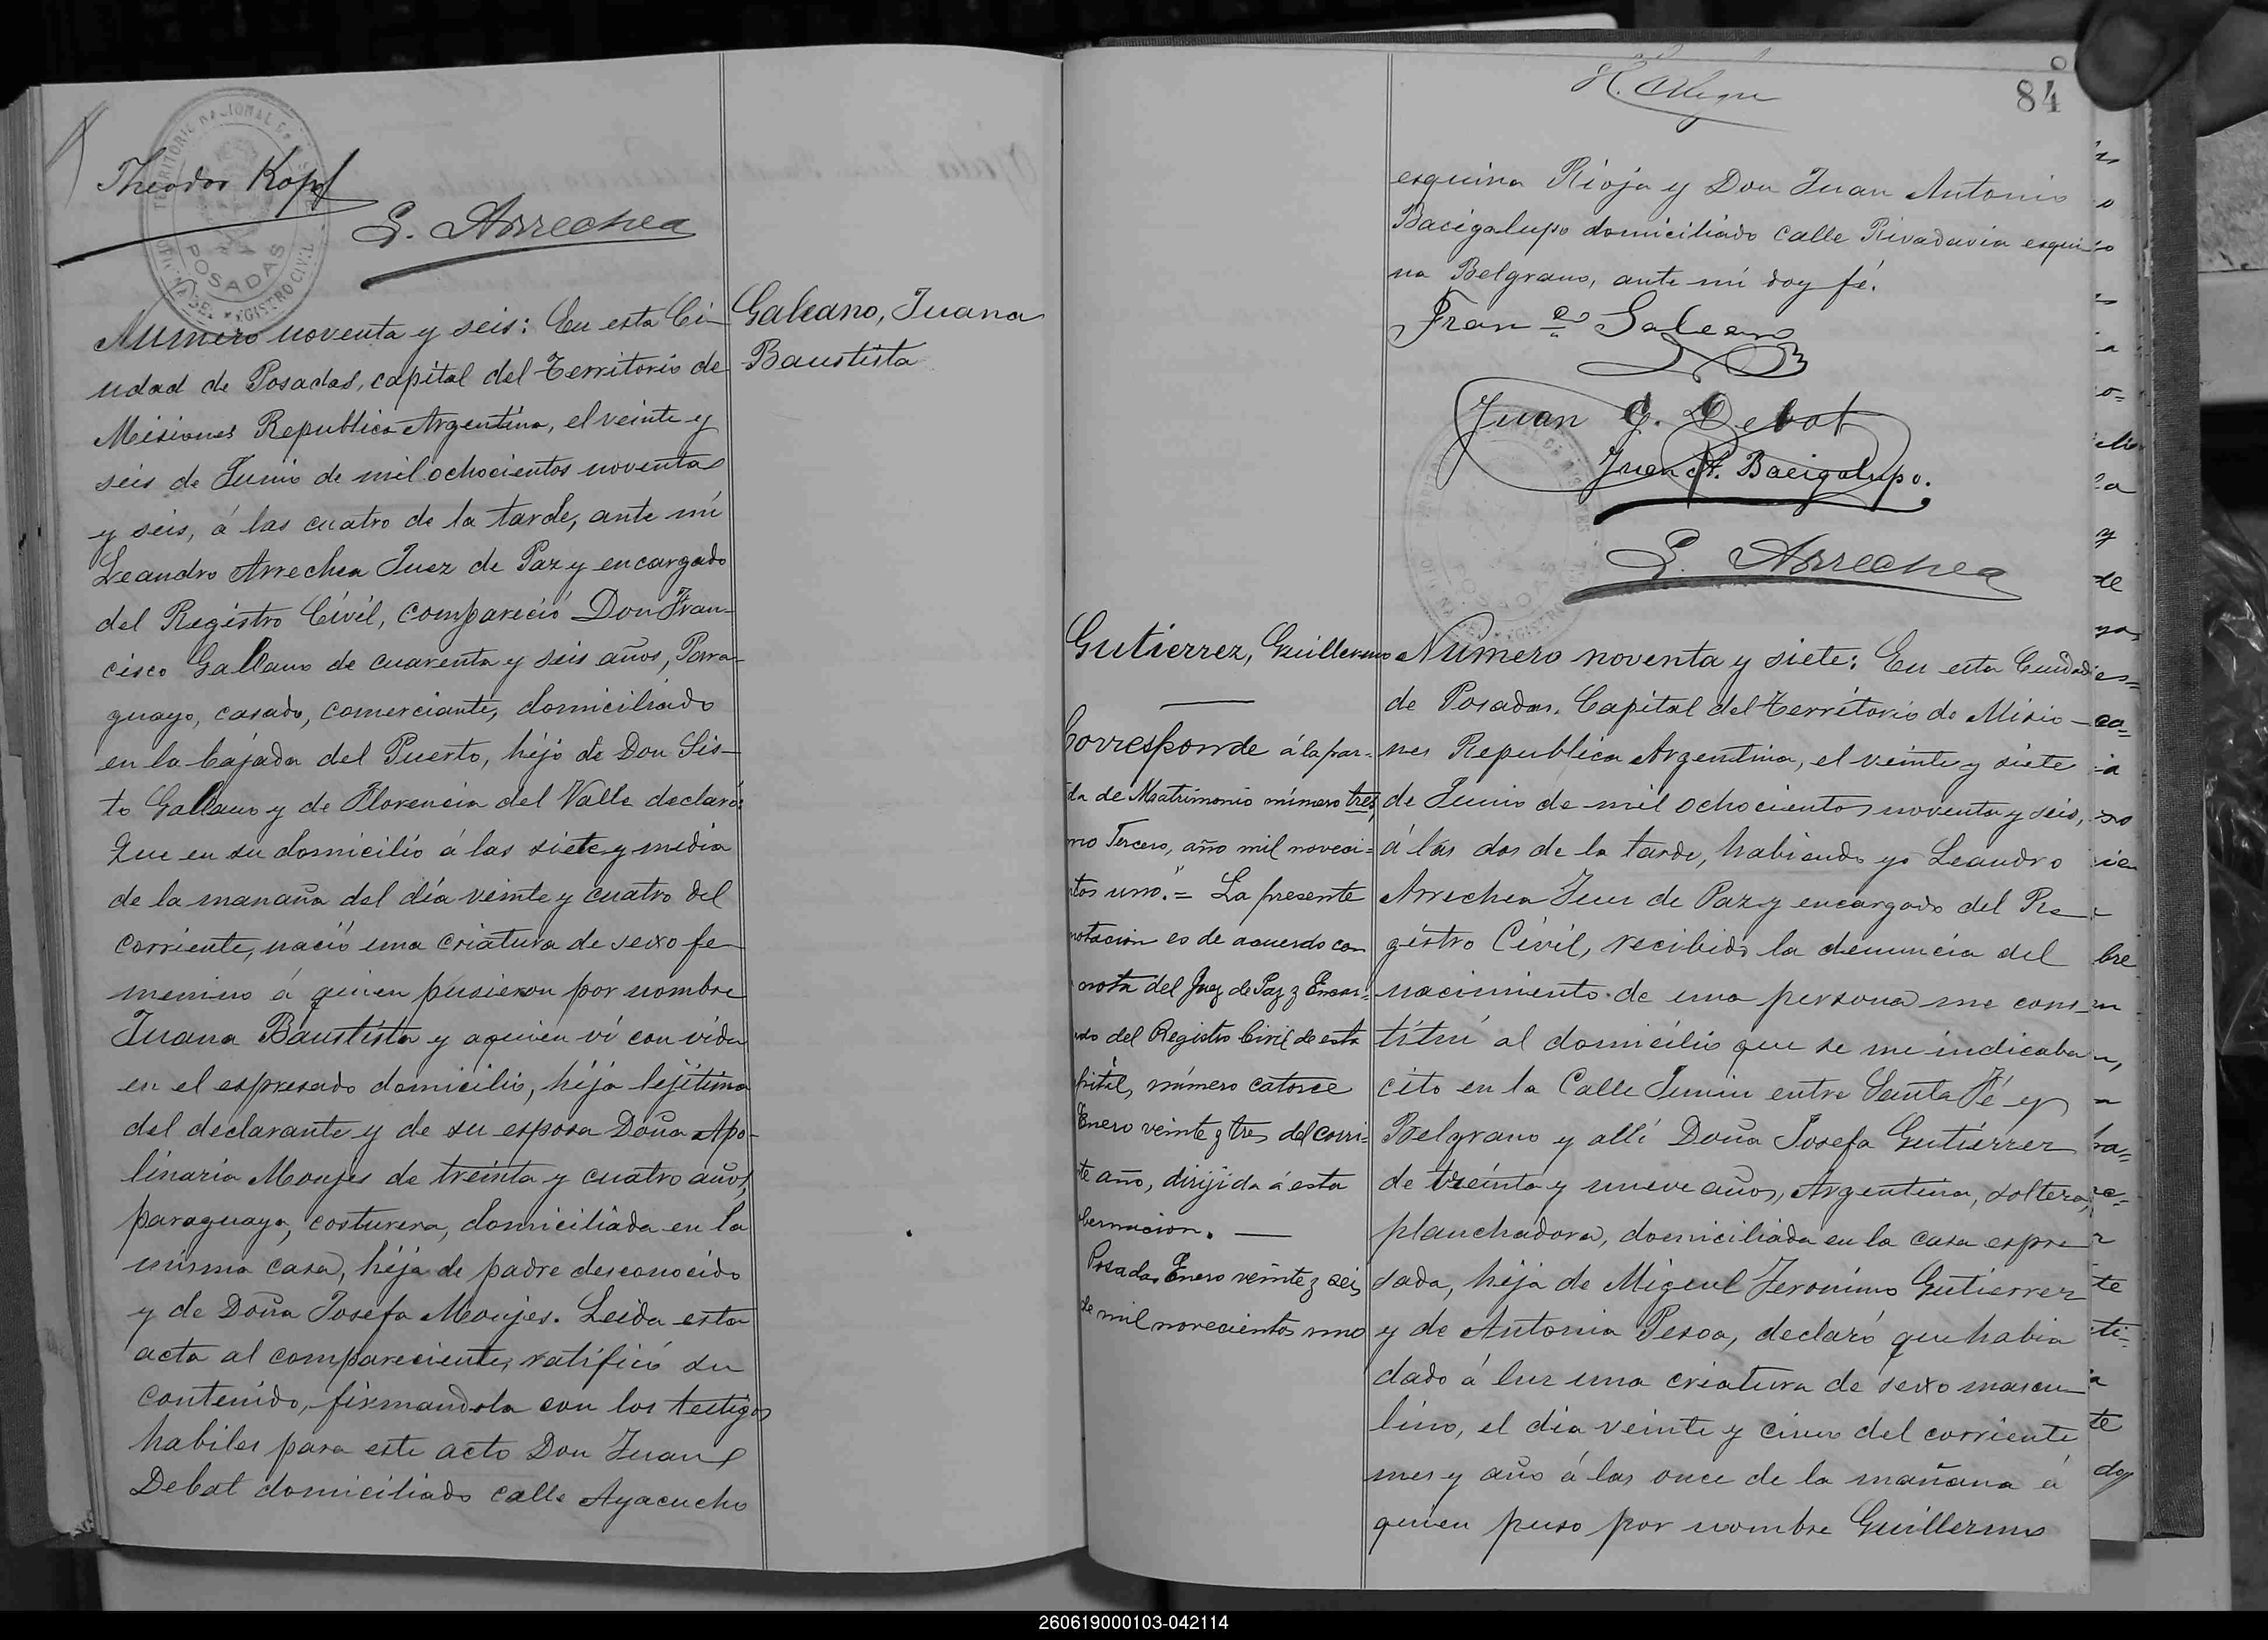 Theodor Kopf
L. Arrechea
TERRITORIO NACIONAL DE
POSADAS
REGISTRO CIVIL
Galeano, Juana
Baustista
Numero noventa y seis: En esta Ci-
udad de Posadas, capital del Territorio de
Misiones Republica Argentina, el veinte y
seis de Junio de mil ochocientos noventa
y seis, á las cuatro de la tarde, ante mi
Leandro Arrechea Juez de Paz y encargado
del Registro Civil, compareció Don Fran-
cisco Galeano de cuarenta y seis años, Para-
guayo, casado, comerciante, domiciliado
en la bajada del Puerto, hijo de Don Sis-
to Galeano y de Florencia del Valle declaró:
Que en su domicilio á las siete y media
de la mañana del día veinte y cuatro del
corriente, nació una criatura de sexo fe-
menino á quien pusieron por nombre
Juana Baustista y aquien ví con vida
en el espresado domicilio, hija lejitima
del declarante y de su esposa Doña Apo-
linaria Monjes de treinta y cuatro años,
paraguaya, costurera, domiciliada en la
misma casa, hija de padre desconocido
y de Doña Josefa Monjes. Leida esta
acta al compareciente, ratificó su
contenido, firmandola con los testigos
habiles para este acto Don Juan
Debat domiciliado calle Ayacucho
84
esquina Rioja y Don Juan Antonio
Bacigalupo domiciliado calle Rivadavia esqui-
na Belgrano, ante mi doy fé.
Franco Galeano
Juan G. Debat
Juan A. Bacigalupo.
L. Arrechea
Gutierrez, Guillermo
Corresponde á la par-
da de Matrimonio número tres,
mo Tercero, año mil noveci-
tos uno." = La presente
notacion es de acuerdo con
nota del Juez de Paz y Encar-
ado del Registro Civil de esta
pital, número catorce
Enero veinte y tres del corri-
te año, dirijida á esta
bernacion. —
Posadas Enero veinte y seis
de mil novecientos uno
Número noventa y siete: En esta Cuidad
de Posadas, Capital del Territorio de Misio-
nes Republica Argentina, el veinte y siete
de Junio de mil ochocientos noventa y seis,
á las dos de la tarde, habiendo yo Leandro
Arrechea Juez de Paz y encargado del Re-
gistro Civil, recibido la denuncia del
nacimiento de una persona me cons-
tituí al domicilio que se me indicaba
cito en la Calle Junin entre Santa Fé y
Belgrano y allí Doña Josefa Gutierrez
de treinta y nueve años, Argentina, soltera,
planchadora, domiciliada en la casa espre
sada, hija de Miguel Jeronimo Gutierrez
y de Antonia Pesoa, declaró que habia
dado á luz una criatura de sexo mascu-
lino, el dia veinte y cinco del corriente
mes y año á las once de la mañana á
quien puso por nombre Guillermo
260619000103-042114